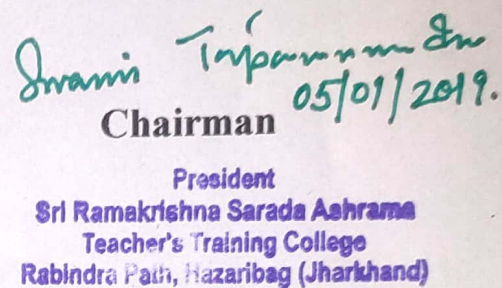 Swami
05/01/2019.
Chairman
President
Sri Ramakrishna Sarada Ashrama
Teacher's Training College
Rabindra Path, Hazaribag (Jharkhand)